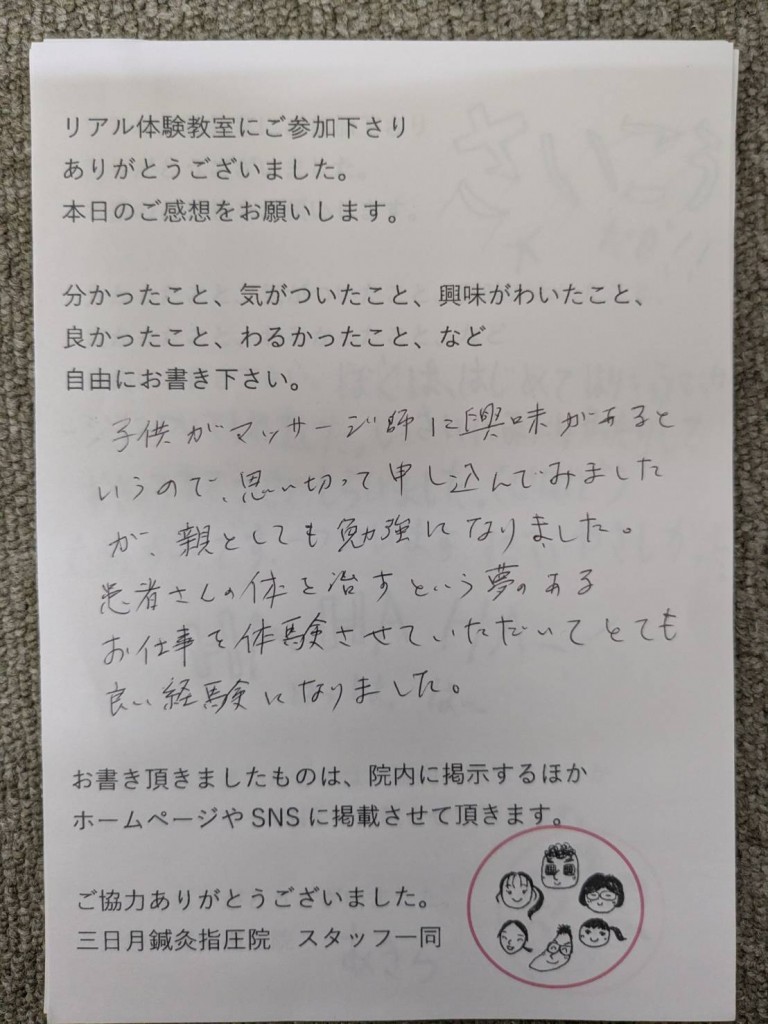 リアル体験教室にご参加下さり
ありがとうございました。
本日のご感想をお願いします。
分かったこと、気がついたこと、興味がわいたこと、
良かったこと、わるかったこと、など
自由にお書き下さい。
子供がマッサージ師に興味があると
いうので、思い切って申し込んでみました
が、親としても勉強になりました。
患者さんの体を治すという夢のある
お仕事を体験させていただいてとても
良い経験になりました。
お書き頂きましたものは、院内に掲示するほか
ホームページやSNSに掲載させて頂きます。
ご協力ありがとうございました。
三日月鍼灸指圧院　スタッフ一同